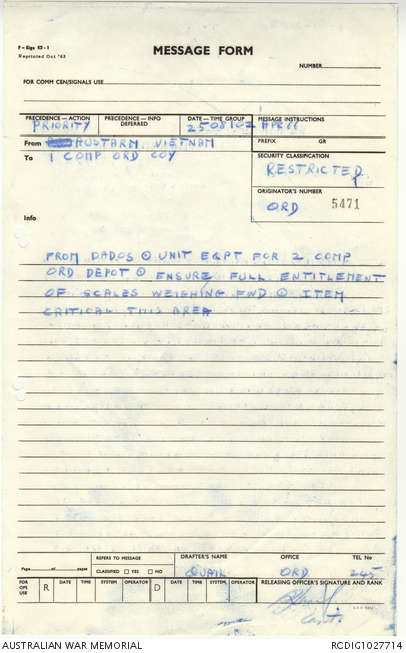 F-Sigs 52-1
Reprinted Oct '63
MESSAGE FORM
NUMBER
FOR COMM CEN/SIGNALS USE
PRECEDENCE—ACTION
PRIORITY
PRECEDENCE—INFO
DEFERRED
DATE—TIME GROUP
250810Z APR 66
MESSAGE INSTRUCTIONS
PREFIX GR
From AUSTARM VIETNAM
To 1 COMP ORD COY
SECURITY CLASSIFICATION
RESTRICTED
ORIGINATOR'S NUMBER
ORD 5471
Info
FROM DADOS ⊙ UNIT EQPT FOR 2 COMP
ORD DEPOT ⊙ ENSURE FULL ENTITLEMENT
OF SCALES WEIGHING FWD ⊙ ITEM
CRITICAL THIS AREA
Page of pages
REFERS TO MESSAGE
CLASSIFIED YES NO
DRAFTER'S NAME
QUAIL
OFFICE
ORD
TEL No
245
FOR OPS USE
R DATE TIME SYSTEM OPERATOR D DATE TIME SYSTEM OPERATOR
RELEASING OFFICER'S SIGNATURE AND RANK
Capt
AUSTRALIAN WAR MEMORIAL
RCDIG1027714